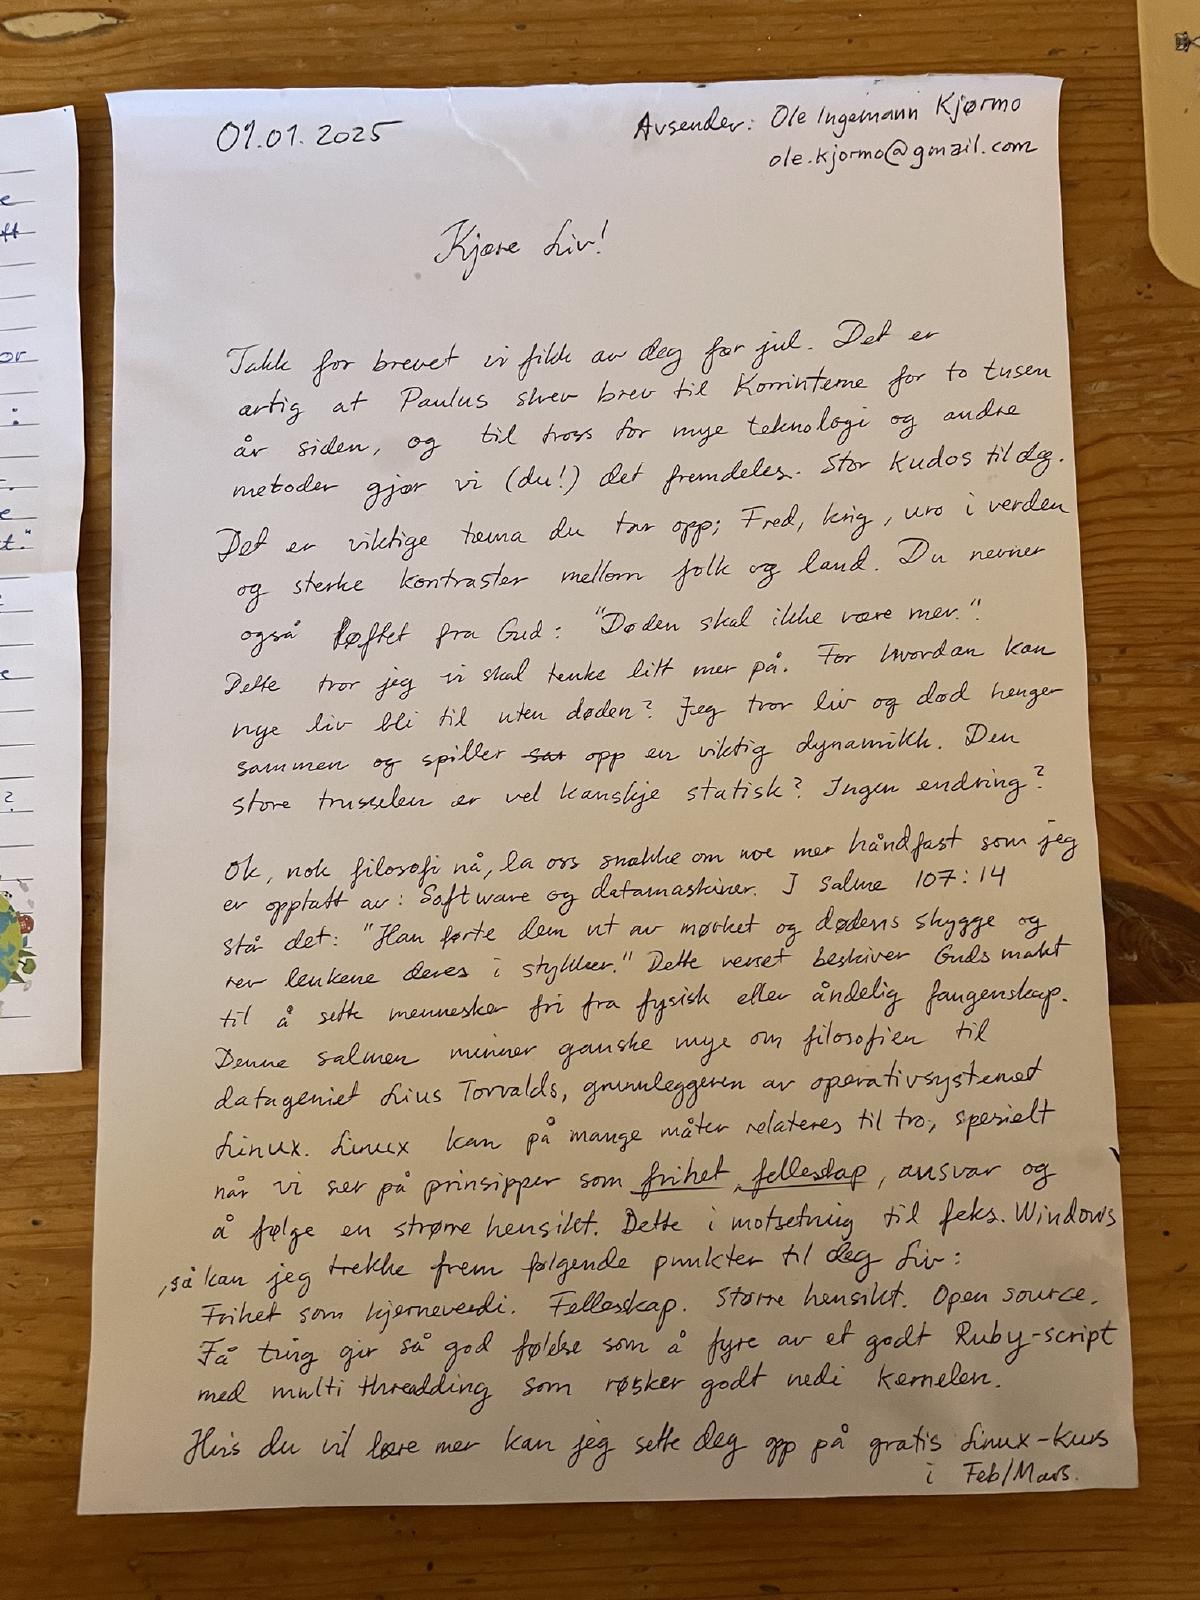 01.01.2025
Avsender: Ole Ingemann Kjørmo
ole.kjormo@gmail.com
Kjære Liv!
Takk for brevet vi fikk av deg før jul. Det er
artig at Paulus skrev brev til Korrinterne for to tusen
år siden, og til tross for mye teknologi og andre
metoder gjør vi (du!) det fremdeles. Stor kudos til deg.
Det er viktige tema du tar opp; Fred, krig, uro i verden
og sterke kontraster mellom folk og land. Du nevner
også løftet fra Gud: "Døden skal ikke være mer.".
Dette tror jeg vi skal tenke litt mer på. For hvordan kan
nye liv bli til uten døden? Jeg tror liv og død henger
sammen og spiller opp en viktig dynamikk. Den
store trusselen er vel kanskje statisk? Ingen endring?
Ok, nok filosofi nå, la oss snakke om noe mer håndfast som jeg
er opptatt av: Software og datamaskiner. I Salme 107:14
står det: "Han førte dem ut av mørket og dødens skygge og
rev lenkene deres i stykker." Dette verset beskiver Guds makt
til å sette mennesker fri fra fysisk eller åndelig fangenskap.
Denne salmen minner ganske mye om filosofien til
datageniet Lius Torvalds, grunnleggeren av operativsystemet
Linux. Linux kan på mange måter relateres til tro, spesielt
når vi ser på prinsipper som frihet, felleskap, ansvar og
å følge en større hensikt. Dette i motsetning til feks. Windows
, så kan jeg trekke frem følgende punkter til deg Liv:
Frihet som kjerneverdi. Felleskap. Større hensikt. Open source.
Få ting gir så god følelse som å fyre av et godt Ruby-script
med multi threadding som røsker godt nedi kernelen.
Hvis du vil lære mer kan jeg sette deg opp på gratis Linux-kurs
i Feb/Mars.